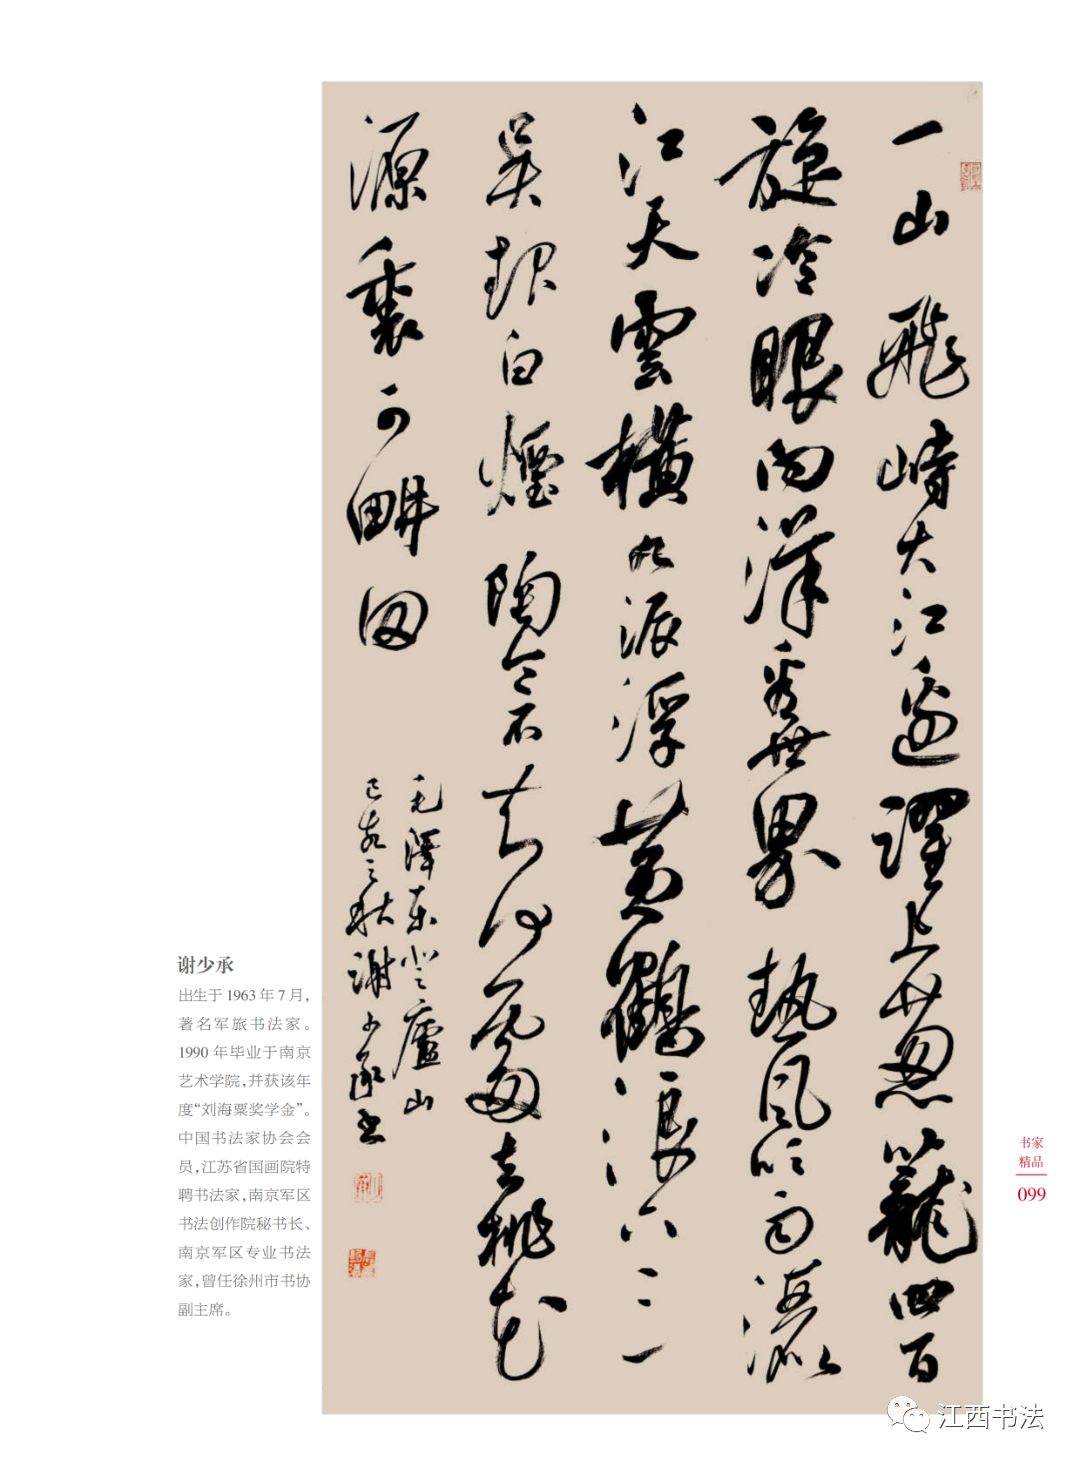 一山飛峙大江邊躍上葱籠四百
旋冷眼向洋看世界熱風吹雨灑
江天雲横九派浮黄鶴浪下三
吴起白煙陶令不知何處去桃花
源裏可耕田
毛澤东登廬山
己亥之秋謝少承书
谢少承
出生于1963年7月，
著名军旅书法家。
1990年毕业于南京
艺术学院，并获该年
度“刘海粟奖学金”。
中国书法家协会会
员，江苏省国画院特
聘书法家，南京军区
书法创作院秘书长、
南京军区专业书法
家，曾任徐州市书协
副主席。
书家
精品
099
江西书法